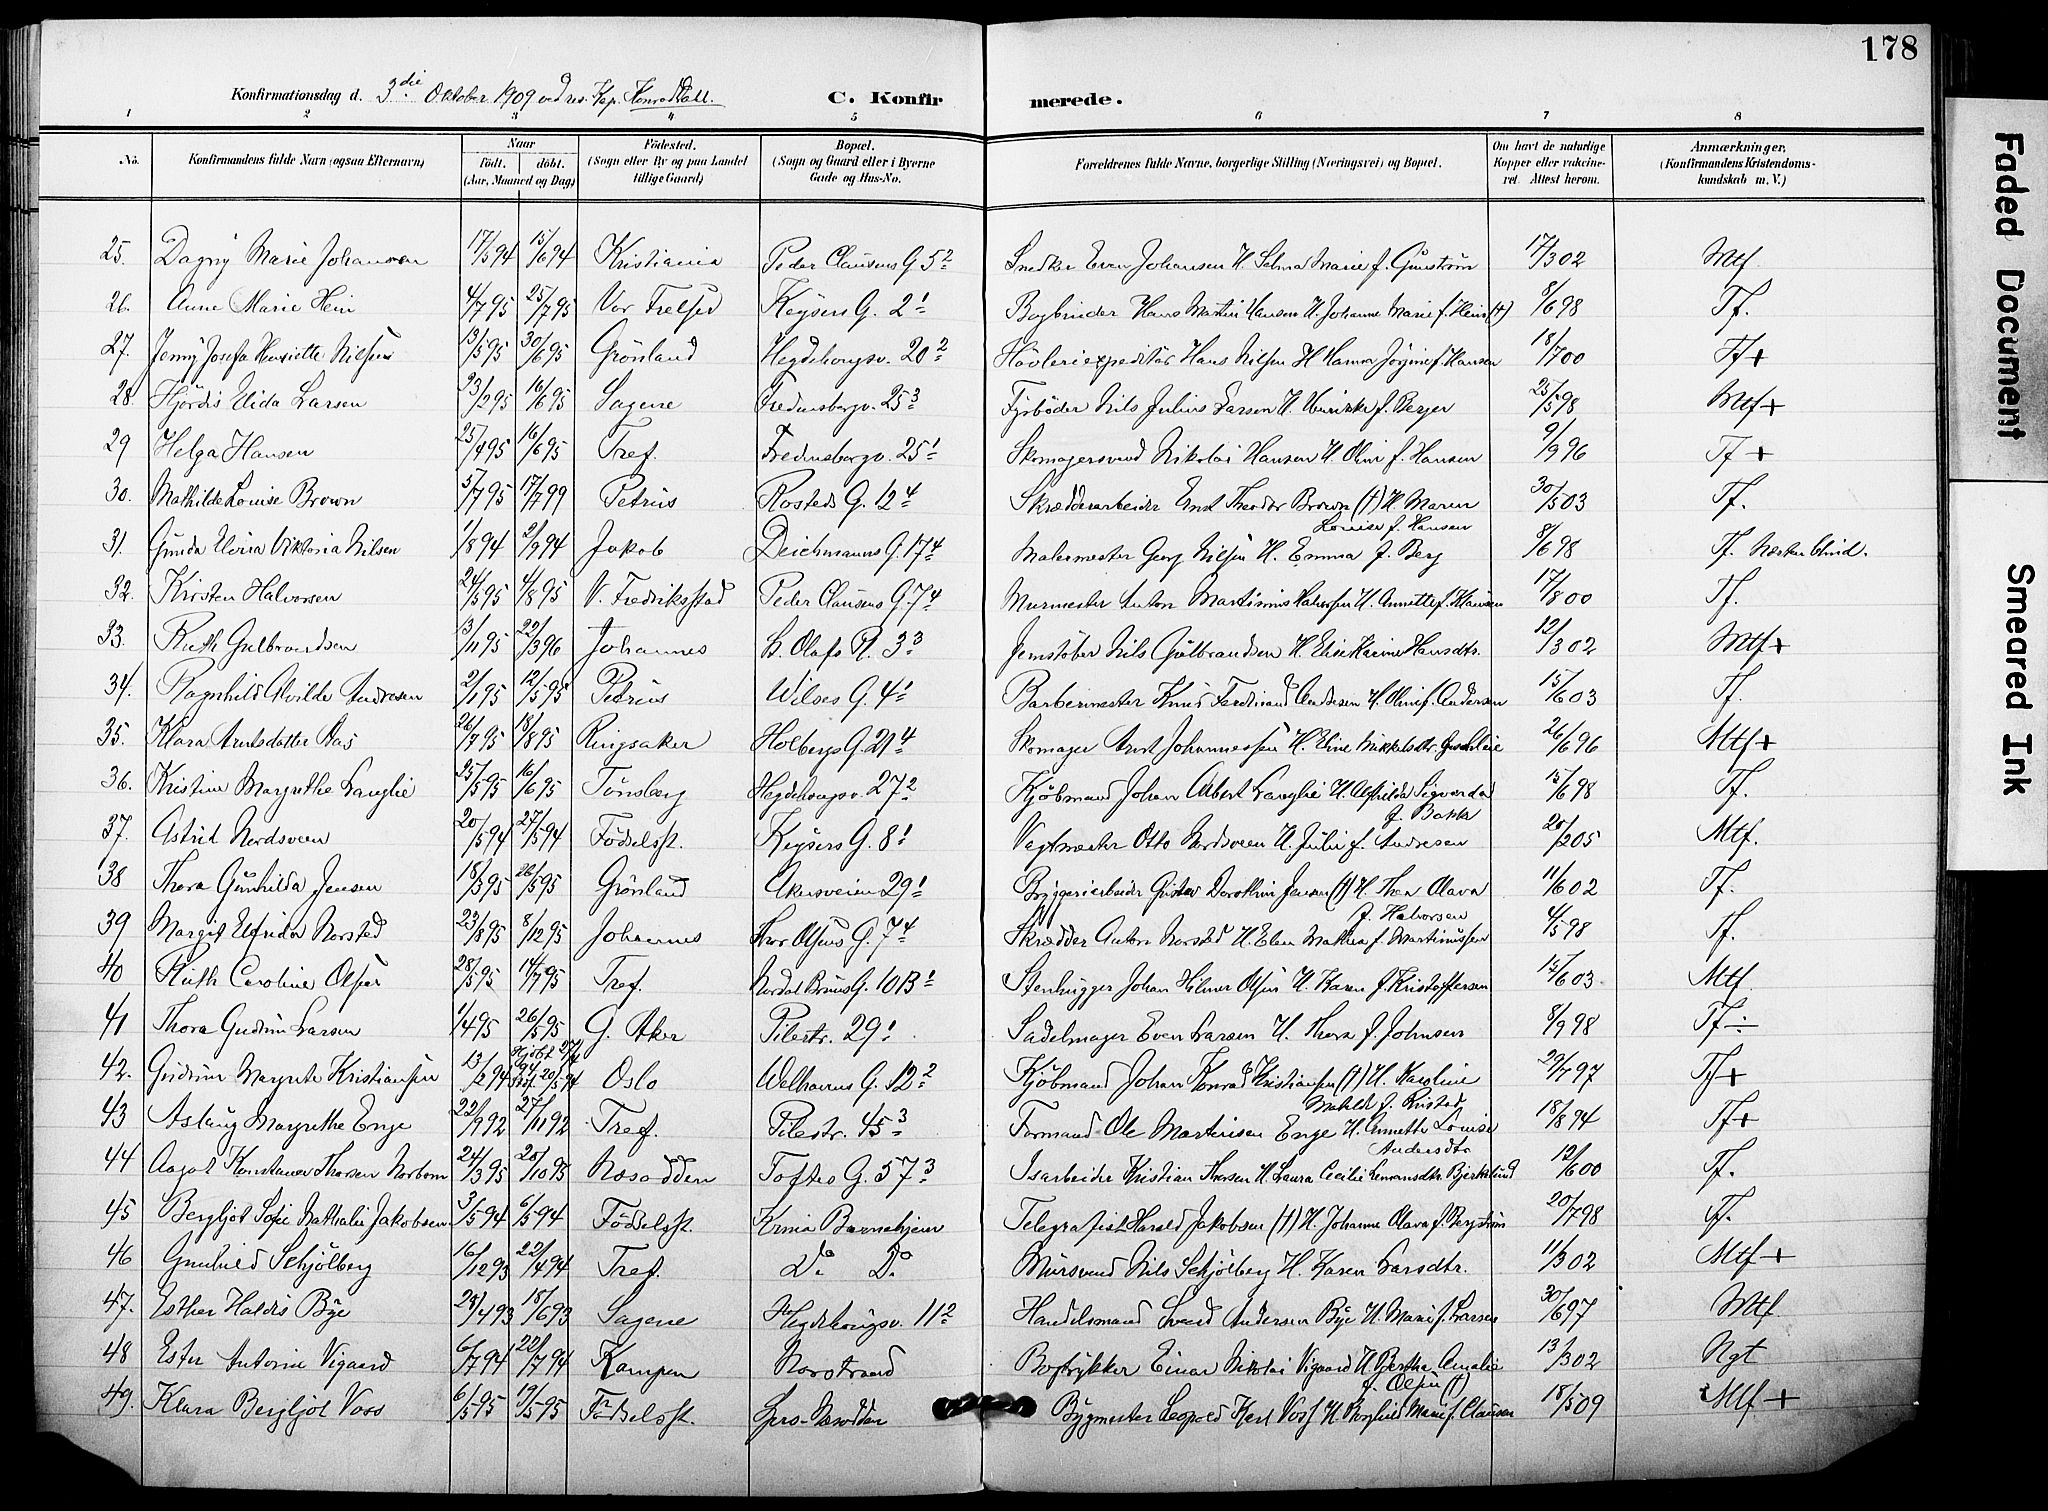 178
Konfirmationsdag d. 3die Oktober 1909 ved res. Kap. Konrad Hall. C. Konfirmerede.
1 2 3 4 5 6 7 8
No. Konfirmandens fulde Navn (ogsaa Efternavn) Naar født. døbt. (Aar, Maaned og Dag) Fødested. (Sogn eller By og paa Landet tillige Gaard) Bopæl. (Sogn og Gaard eller i Byerne Gade og Hus-No. Forældrenes fulde Navne, borgerlige Stilling (Næringsvei) og Bopæl. Om havt de naturlige Kopper eller vaccineret. Attest herom. Anmærkninger, (Konfirmandens Kristendomskundskab m. V.)
25. Dagny Marie Johansen 17/5 94 15/6 94 Kristiania Peder Clausens G. 5² Snedker Even Johansen H. Selma Marie f. Gunström 17/3 02 Mtf.
26. Anne Marie Hein 4/7 95 25/7 95 Vor Frelser Keysers G. 2¹ Bogbinder Hans Martin Hansen H. Johanne Marie f. Hein (†) 8/6 98 Tf.
27. Jenny Josefa Henriette Nilsen 13/5 95 30/6 95 Grönland Hegdehougsv. 20² Hövleriexpeditör Hans Nilsen H. Hanna Jörgine f. Hansen 18/7 00 Tf+
28. Hjördis Elida Larsen 23/2 95 16/6 95 Sagene Fredensborgv. 25³ Fyrböder Nils Julius Larsen H. Henrikke f. Berger 25/5 98 Mtf+
29 Helga Hansen 25/4 95 16/6 95 Tref. Fredensborgv. 25¹ Skomagersvend Nikolai Hansen H. Olini f. Hansen 9/9 96 Tf+
30. Mathilde Louise Brown 5/7 95 17/7 99 Petrus Rosteds G. 12⁴ Skrædderarbeider Ernst Theodor Brown (†) H. Maren Louise f. Hansen 30/5 03 Tf.
31. Gunda Elvira Viktoria Nilsen 1/8 94 2/9 94 Jakob Deichmanns G. 17⁴ Malermester Georg Nilsen H. Emma f. Berg 8/6 98 Tf. Næsten blind.
32. Kirsten Halvorsen 24/5 95 4/8 95 V. Fredriksstad Peder Clausens G. 7⁴ Murmester Anton Martinius Halvorsen H. Annette f. Klausen 17/8 00 Tf.
33. Ruth Gulbrandsen 13/11 95 22/3 96 Johannes St. Olafs Pl. 3³ Jernstöber Nils Gulbrandsen H. Elise Karine Hansdtr. 12/3 02 Mtf+
34. Ragnhild Alvilde Andresen 2/1 95 12/5 95 Petrus Wilses G. 4¹ Barbermester Knud Ferdinand Andresen H. Oline f. Andersen 15/6 03 Tf.
35. Klara Arntsdatter Aas 26/7 95 18/8 95 Ringsaker Holbergs G. 21⁴ Skomager Arnt Johannessen H. Eline Mikkelsdtr. 26/6 96 Mtf+
36. Kristine Margrethe Langlie 25/5 95 16/6 95 Tönsberg Hegdehougsv. 27² Kjöbmand Johan Albert Langlie H. Alfhilda Sigvarda f. Bakke 15/6 98 Tf.
37. Astrid Nordsveen 20/5 94 27/5 94 Födselsst. Keysers G. 8¹ Vagtmester Otto Nordsveen H. Julie f. Andresen 20/2 05 Mtf.
38 Thora Gunhilda Jensen 18/3 95 26/5 95 Grönland Akersveien 29¹ Bryggeriarbeider Gustav Dorothin Jensen (†) H. Thea Olava f. Halvorsen 11/6 02 Tf.
39 Margit Elfrida Norstad 23/8 95 8/12 95 Johannes Thor Olsens G. 7⁴ Skrædder Anton Norstad H. Elen Mathea f. Martinussen 4/5 98 Tf.
40 Ruth Caroline Olsen 28/5 95 14/7 95 Tref. Nordal Bruns G. 10B¹ Stenhugger Johan Hilmer Olsen H. Karen f. Kristoffersen 15/6 03 Mtf.
41 Thora Gudrun Larsen 1/4 95 26/5 95 G. Aker Pilestr. 29¹ Sadelmager Even Larsen H. Thora f. Johnsen 8/9 98 Tf÷
42. Gudrun Margrete Kristiansen 13/2 94 Hjdbt 27/4 94 20/5 94 Oslo Welhavens G. 12² Kjöbmand Johan Konrad Kristiansen (†) H. Karoline Mathilde f. Ristad 29/7 97 Tf+
43 Aslaug Margrethe Enge 22/9 92 27/11 92 Tref. Pilestr. 45³ Formand Ole Martinsen Enge H. Annette Louise Andersdtr 18/8 94 Tf+
44 Aagot Konstance Thorsen Norbom 24/3 95 20/10 95 Næsodden Toftes G. 57³ Isarbeider Kristian Thorsen H. Laura Cecilie Bjerkelund 12/6 00 Tf.
45 Bergljot Sofie Nathalie Jakobsen 3/5 94 6/5 94 Födselsst. Krnia Barnehjem Telegrafist Harald Jakobsen (†) H. Johanne Olava f. Bergström 20/7 98 Tf.
46 Gunhild Schjölberg 16/12 93 22/4 94 Tref. Do. Do. Mursvend Nils Schjölberg H. Karen Larsdtr. 11/3 02 Mtf+
47. Esther Haldis Bye 28/4 93 18/6 93 Sagene Hegdehougsv. 11² Handelsmand Svend Andersen Bye H. Marie f. Larsen 30/6 97 Mtf
48 Ester Antonie Vigaard 6/7 94 22/7 94 Kampen Norstrand Boftrykker Einar Nikolai Vigaard H. Bertha Amalie f. Olsen (†) 13/3 02 Ngt
49. Klara Bergljot Voss 6/5 95 19/5 95 Födselsst. Spro-Næsodden Bygmester Leopold Karl Voss H. Borghild Marie f. Clausen 18/5 09 Mtf+
Faded Document
Smeared Ink